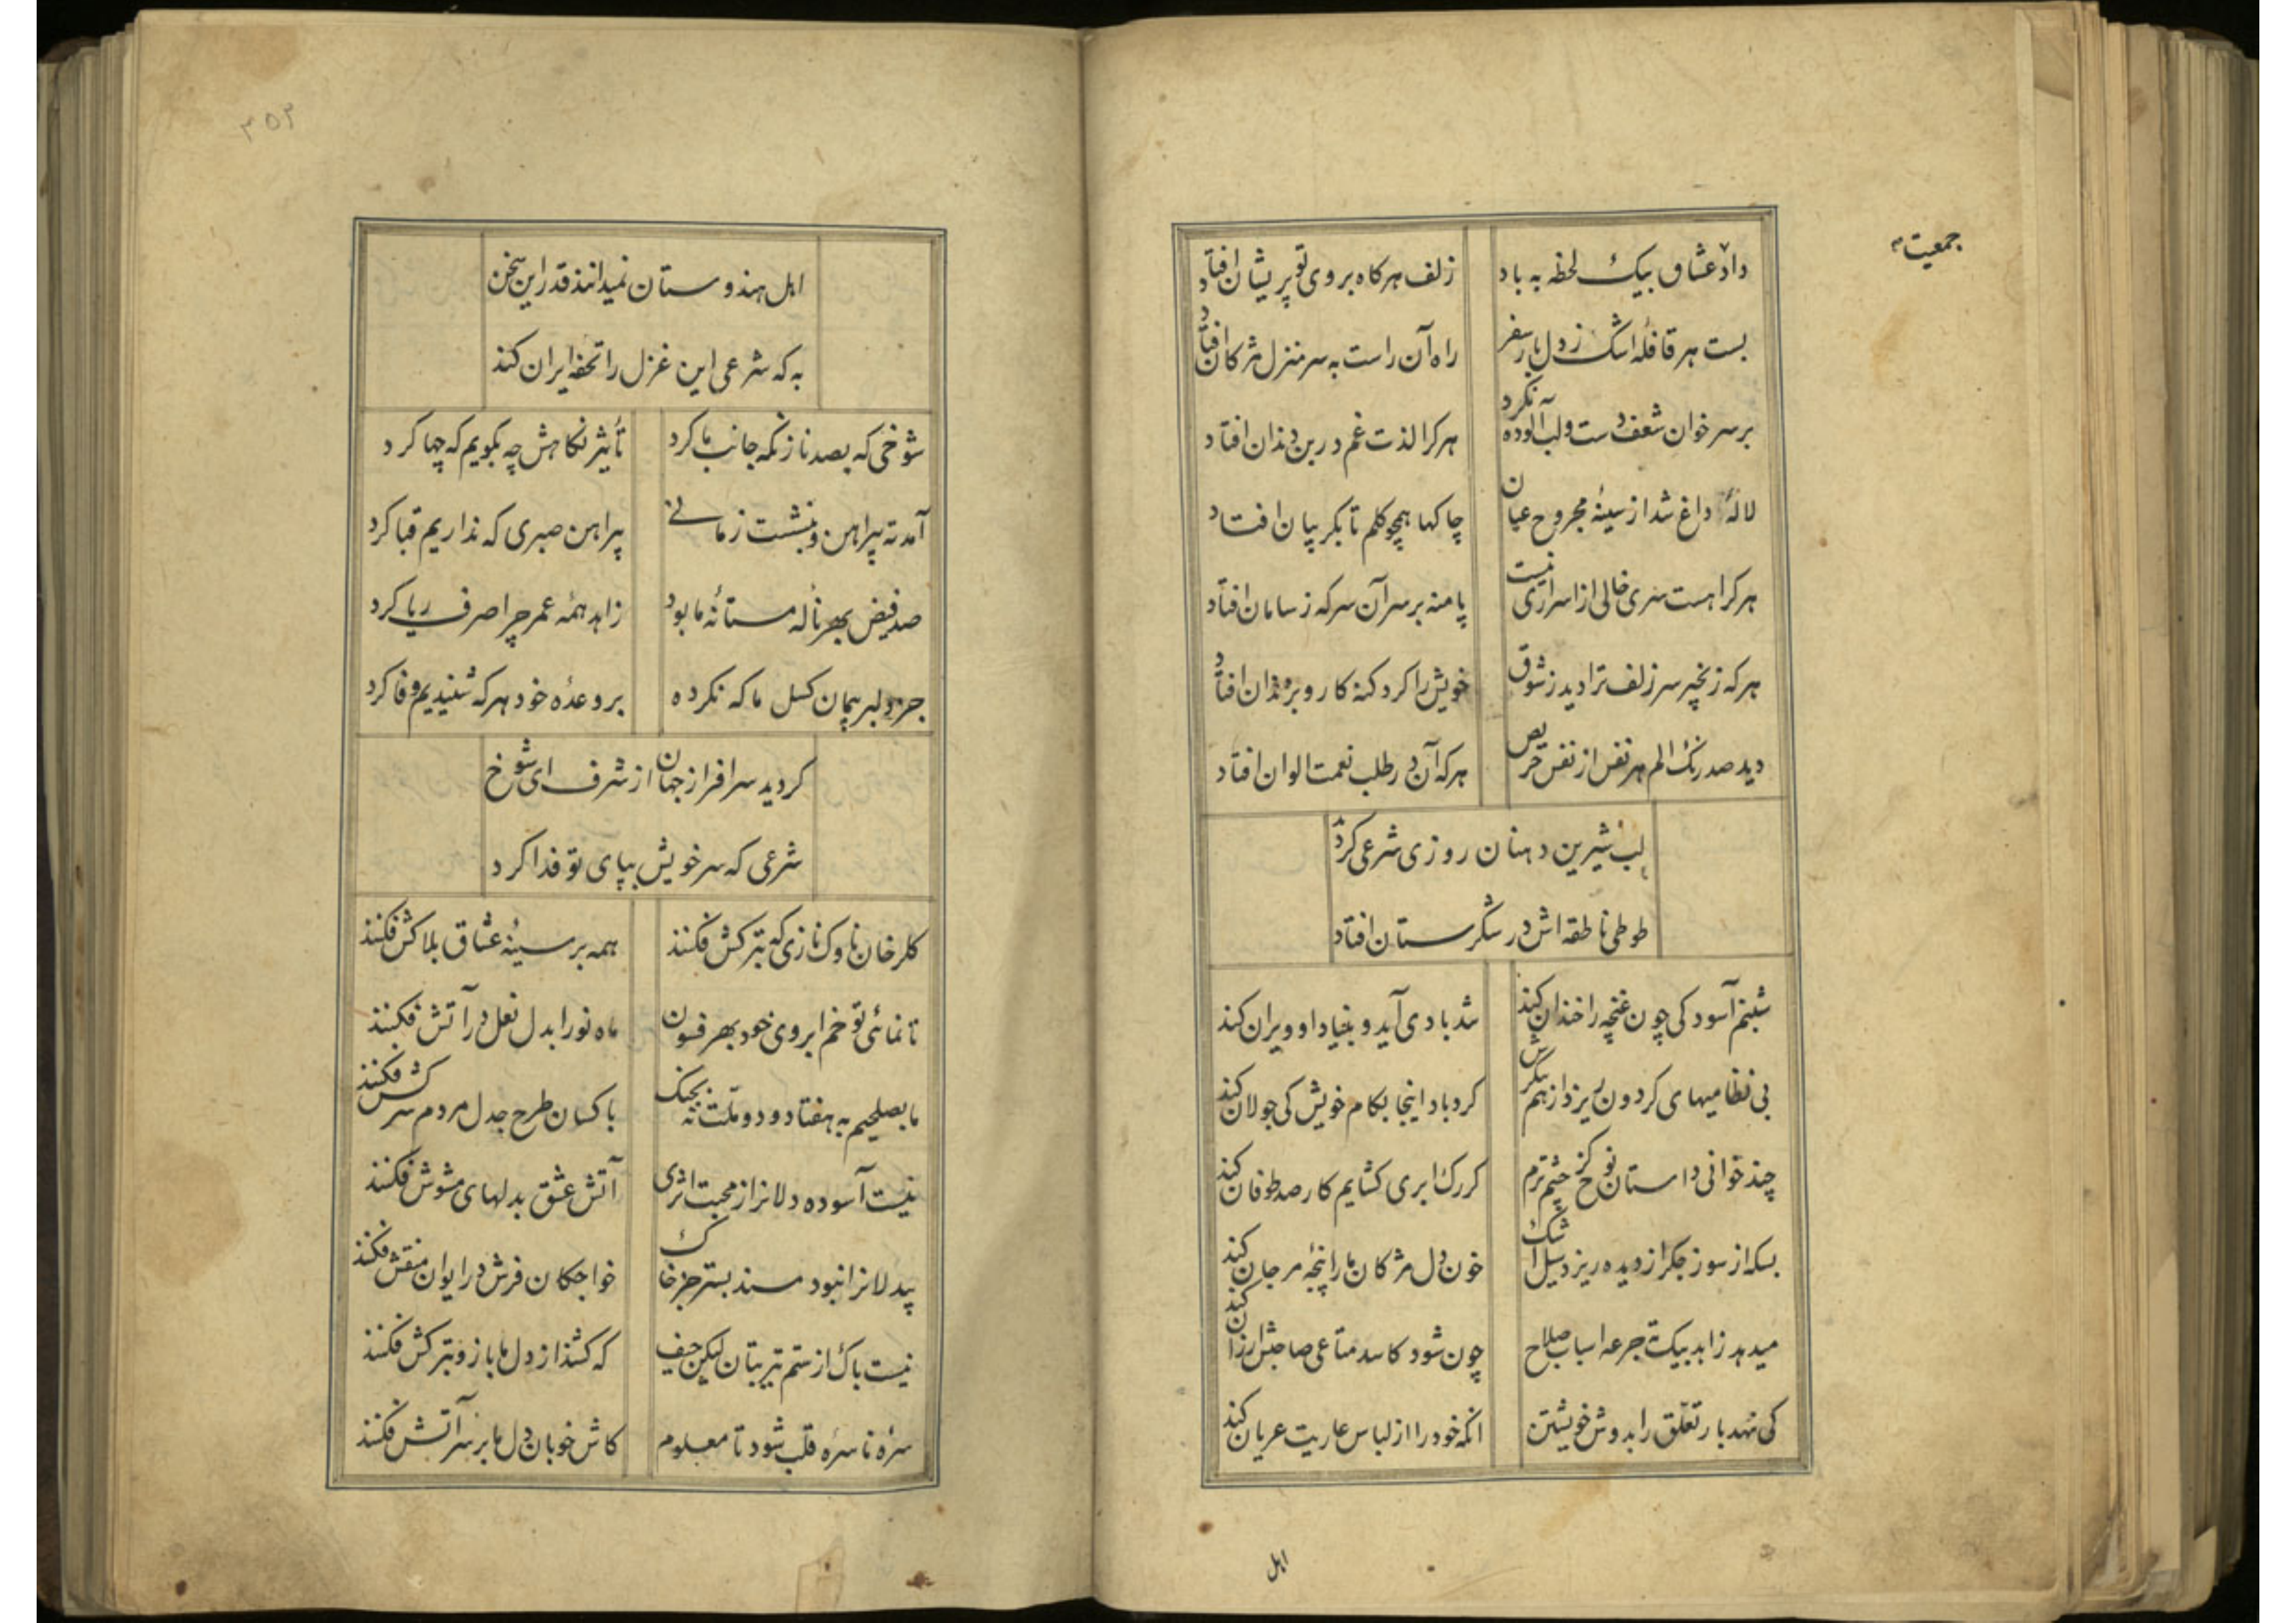 جمعیت
داد عشاق بیک لحظه به باد زلف هرکاه بروی تو پریشان افتاد
بست هر قافله اشک ز دل بار سفر راه آن راست به سر منزل مژکان افتاد
بر سر خوان شعف دست و لب آلوده نکرد هرکرا لذت غم در بن دندان افتاد
لالهٔ داغ شد از سینهٔ مجروح عیان چاکها همچو کلم تا بکریبان افتاد
هرکرا هست سری خالی از اسراری نیست پا منه بر سر آن سر که ز سامان افتاد
هرکه زنجیر سر زلف ترا دید ز شوق خویش را کرد کنه کار و بزندان افتاد
دید صد رنک الم هر نفس از نفس حریص هرکه آن در طلب نعمت الوان افتاد
لب شیرین دهنان روزی شرعی کرد
طوطی ناطقه اش در شکرستان افتاد
شبنم آسودکی چون غنچه را خندان کند تند بادی آید و بنیاد او ویران کند
بی نظامیهای کردون ریزد از هم نکرش کردباد اینجا بکام خویش کی جولان کند
چند خوانی داستان نوح کز چشم ترم کر رک ابری کشایم کار صد طوفان کند
بسکه از سوز جکر از دیده ریزد سیل اشک خون دل مژکان ما را پنجهٔ مرجان کند
میدهد زاهد بیک ته جرعه اسباب صلاح چون شود کاسد متاعی صاحبش ارزان کند
کی نهد بار تعلق را بدوش خویشتن انکه خود را از لباس عاریت عریان کند
اهل
۳۵۳
اهل هندوستان نمیدانند قدر این سخن
به که شرعی این غزل را تحفه ایران کند
شوخی که بصد ناز نکه جانب ما کرد تأثیر نکاهش چه بکویم که چها کرد
آمد ته پیراهن و بنشست زمانی پیراهن صبری که نداریم قبا کرد
صد فیض بهر نالهٔ مستانهٔ ما بود زاهد همه عمر چرا صرف ریا کرد
جز دلبر پیمان کسل ما که نکرده بر وعدهٔ خود هرکه شنیدیم وفا کرد
کردید سرافراز جهان از شرف ای شوخ
شرعی که سر خویش بپای تو فدا کرد
کلرخان ناوک نازی که بترکش فکنند همه بر سینهٔ عشاق بلاکش فکنند
تا نمائی تو خم ابروی خود بهر فسون ماه نو را بدل نعل در آتش فکنند
ما بصلحیم به هفتاد و دو ملت نه بجنک با کسان طرح جدل مردم سرکش فکنند
نیست آسوده دلانرا از محبت اثری آتش عشق بدلهای مشوش فکنند
بیدلانرا نبود مسند بستر جز خاک خواجکان فرش در ایوان منقش فکنند
نیست باک از ستم تیر بتان لیکن حیف که کشند از دل ما باز و بترکش فکنند
سره ناسره قلب شود تا معلوم کاش خوبان دل ما بر سر آتش فکنند